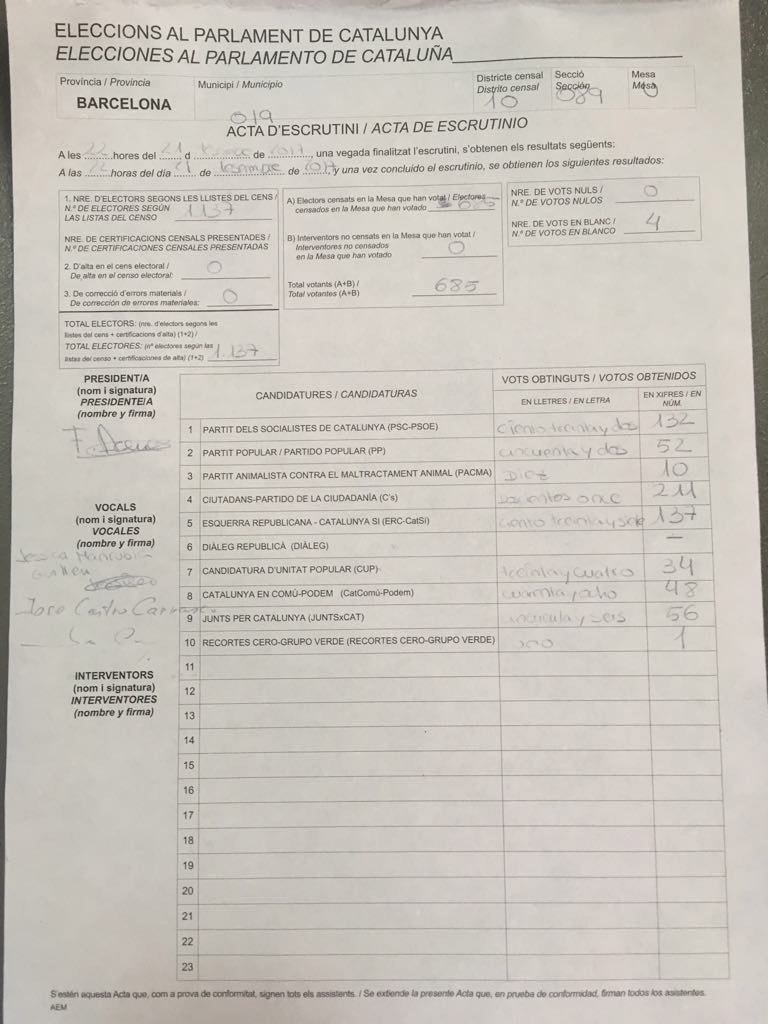 ELECCIONS AL PARLAMENT DE CATALUNYA
ELECCIONES AL PARLAMENTO DE CATALUÑA
Província / Provincia
BARCELONA
Municipi / Municipio
019
Districte censal
Distrito censal
10
Secció
Sección
089
Mesa
Mesa
ACTA D'ESCRUTINI / ACTA DE ESCRUTINIO
A les 22 hores del 21 d de 2017, una vegada finalitzat l'escrutini, s'obtenen els resultats següents:
A las horas del día de de 2017, y una vez concluido el escrutinio, se obtienen los siguientes resultados:
1. NRE. D'ELECTORS SEGONS LES LLISTES DEL CENS /
N.º DE ELECTORES SEGÚN
LAS LISTAS DEL CENSO 1137
NRE. DE CERTIFICACIONS CENSALS PRESENTADES /
N.º DE CERTIFICACIONES CENSALES PRESENTADAS
2. D'alta en el cens electoral / 0
De alta en el censo electoral:
3. De correcció d'errors materials / 0
De corrección de errores materiales:
TOTAL ELECTORS: (nre. d'electors segons les
llistes del cens + certificacions d'alta) (1+2) /
TOTAL ELECTORES: (nº electores según las
listas del censo + certificaciones de alta) (1+2) 1.137
A) Electors censats en la Mesa que han votat / Electores
censados en la Mesa que han votado
B) Interventors no censats en la Mesa que han votat /
Interventores no censados
en la Mesa que han votado 0
Total votants (A+B) /
Total votantes (A+B) 685
NRE. DE VOTS NULS /
N.º DE VOTOS NULOS 0
NRE. DE VOTS EN BLANC /
N.º DE VOTOS EN BLANCO 4
PRESIDENT/A
(nom i signatura)
PRESIDENTE/A
(nombre y firma)
VOCALS
(nom i signatura)
VOCALES
(nombre y firma)
Jose Castro
INTERVENTORS
(nom i signatura)
INTERVENTORES
(nombre y firma)
CANDIDATURES / CANDIDATURAS
VOTS OBTINGUTS / VOTOS OBTENIDOS
EN LLETRES / EN LETRA
EN XIFRES / EN
NÚM.
1 PARTIT DELS SOCIALISTES DE CATALUNYA (PSC-PSOE) ciento treinta y dos 132
2 PARTIT POPULAR / PARTIDO POPULAR (PP) cincuenta y dos 52
3 PARTIT ANIMALISTA CONTRA EL MALTRACTAMENT ANIMAL (PACMA) Diez 10
4 CIUTADANS-PARTIDO DE LA CIUDADANÍA (C's) Doscientos once 211
5 ESQUERRA REPUBLICANA - CATALUNYA SI (ERC-CatSí) ciento treinta y siete 137
6 DIÀLEG REPUBLICÀ (DIÀLEG) —
7 CANDIDATURA D'UNITAT POPULAR (CUP) treinta y cuatro 34
8 CATALUNYA EN COMÚ-PODEM (CatComú-Podem) cuarenta y ocho 48
9 JUNTS PER CATALUNYA (JUNTSxCAT) cincuenta y seis 56
10 RECORTES CERO-GRUPO VERDE (RECORTES CERO-GRUPO VERDE) 1
11
12
13
14
15
16
17
18
19
20
21
22
23
S'estén aquesta Acta que, com a prova de conformitat, signen tots els assistents. / Se extiende la presente Acta que, en prueba de conformidad, firman todos los asistentes.
AEM